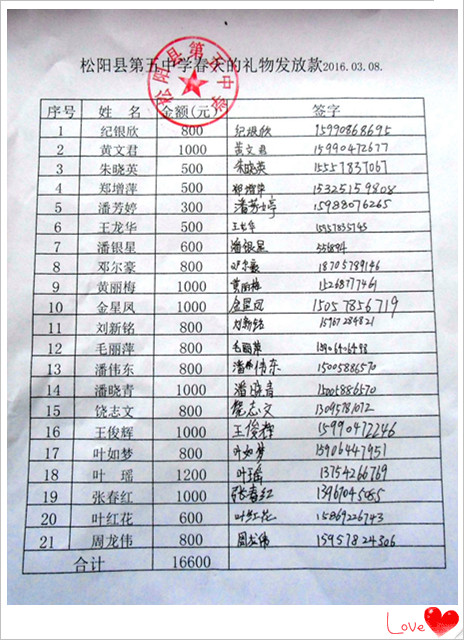 松阳县第五中学春天的礼物发放款2016.03.08.
松阳县第五中学
序号 姓 名 金额(元) 签字
1 纪银欣 800 纪银欣 15990868695
2 黄文君 1000 黄文君 15990472677
3 朱晓英 500 朱晓英 15557837067
4 郑增萍 500 郑增萍 15325159808
5 潘芳婷 300 潘芳婷 15988076265
6 王龙华 500 王龙华 15957835743
7 潘银星 600 潘银星
8 邓尔豪 800 邓尔豪 18705789146
9 黄丽梅 1000 黄丽梅 15268777461
10 金星凤 1000 金星凤 15057856719
11 刘新铭 800 刘新铭 15967284821
12 毛丽萍 800 毛丽萍
13 潘伟东 800 潘伟东 15005886570
14 潘晓青 1000 潘晓青 15005886570
15 饶志文 800 饶志文 13095781072
16 王俊辉 1000 王俊辉 15990472246
17 叶如梦 800 叶如梦 15906447951
18 叶 瑶 1200 叶瑶 13754266769
19 张春红 1000 张春红
20 叶红花 600 叶红花 15869226743
21 周龙伟 800 周龙伟 15957824306
合计 16600
Love